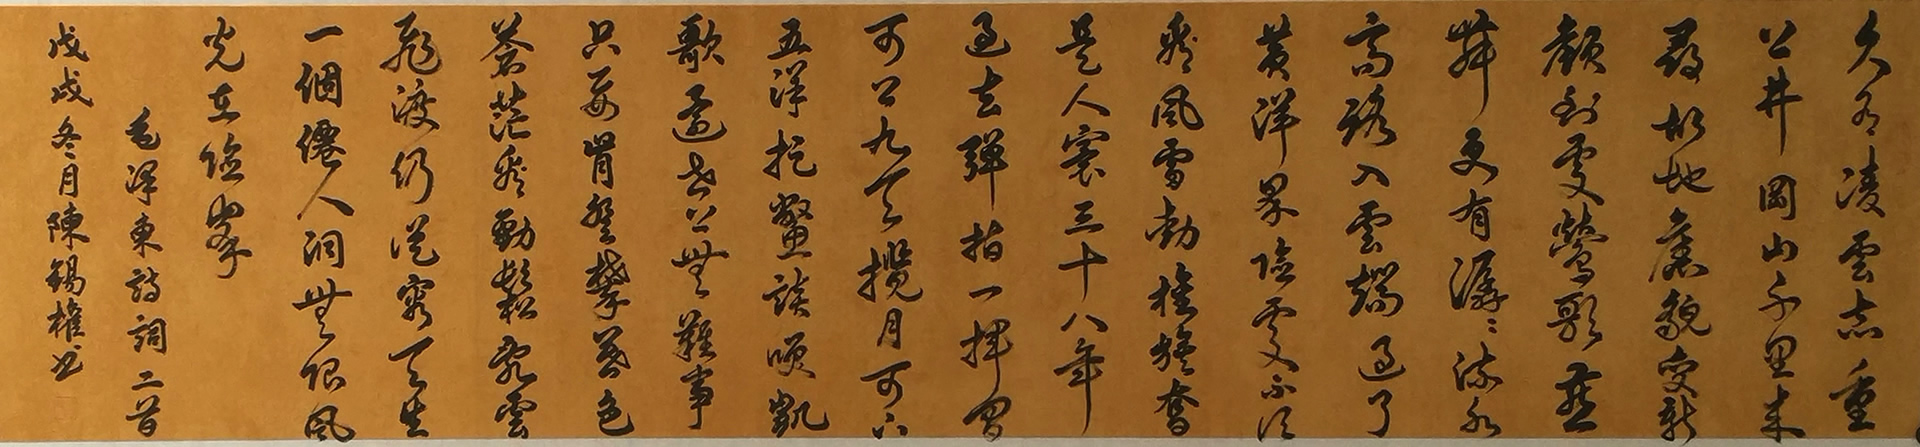 久有凌雲志重
上井岡山千里来
尋故地舊貌變新
顏到處鶯歌燕
舞更有潺〻流水
高路入雲端過了
黃洋界險處不須
看風雷動旌旗奮
是人寰三十八年
過去彈指一揮間
可上九天攬月可下
五洋捉鱉談笑凱
歌還世上無難事
只要肯登攀暮色
蒼茫看勁鬆亂雲
飛渡仍從容天生
一個僊人洞無限風
光在險峯
毛澤東詩詞二首
戊戌冬月陳錫權書